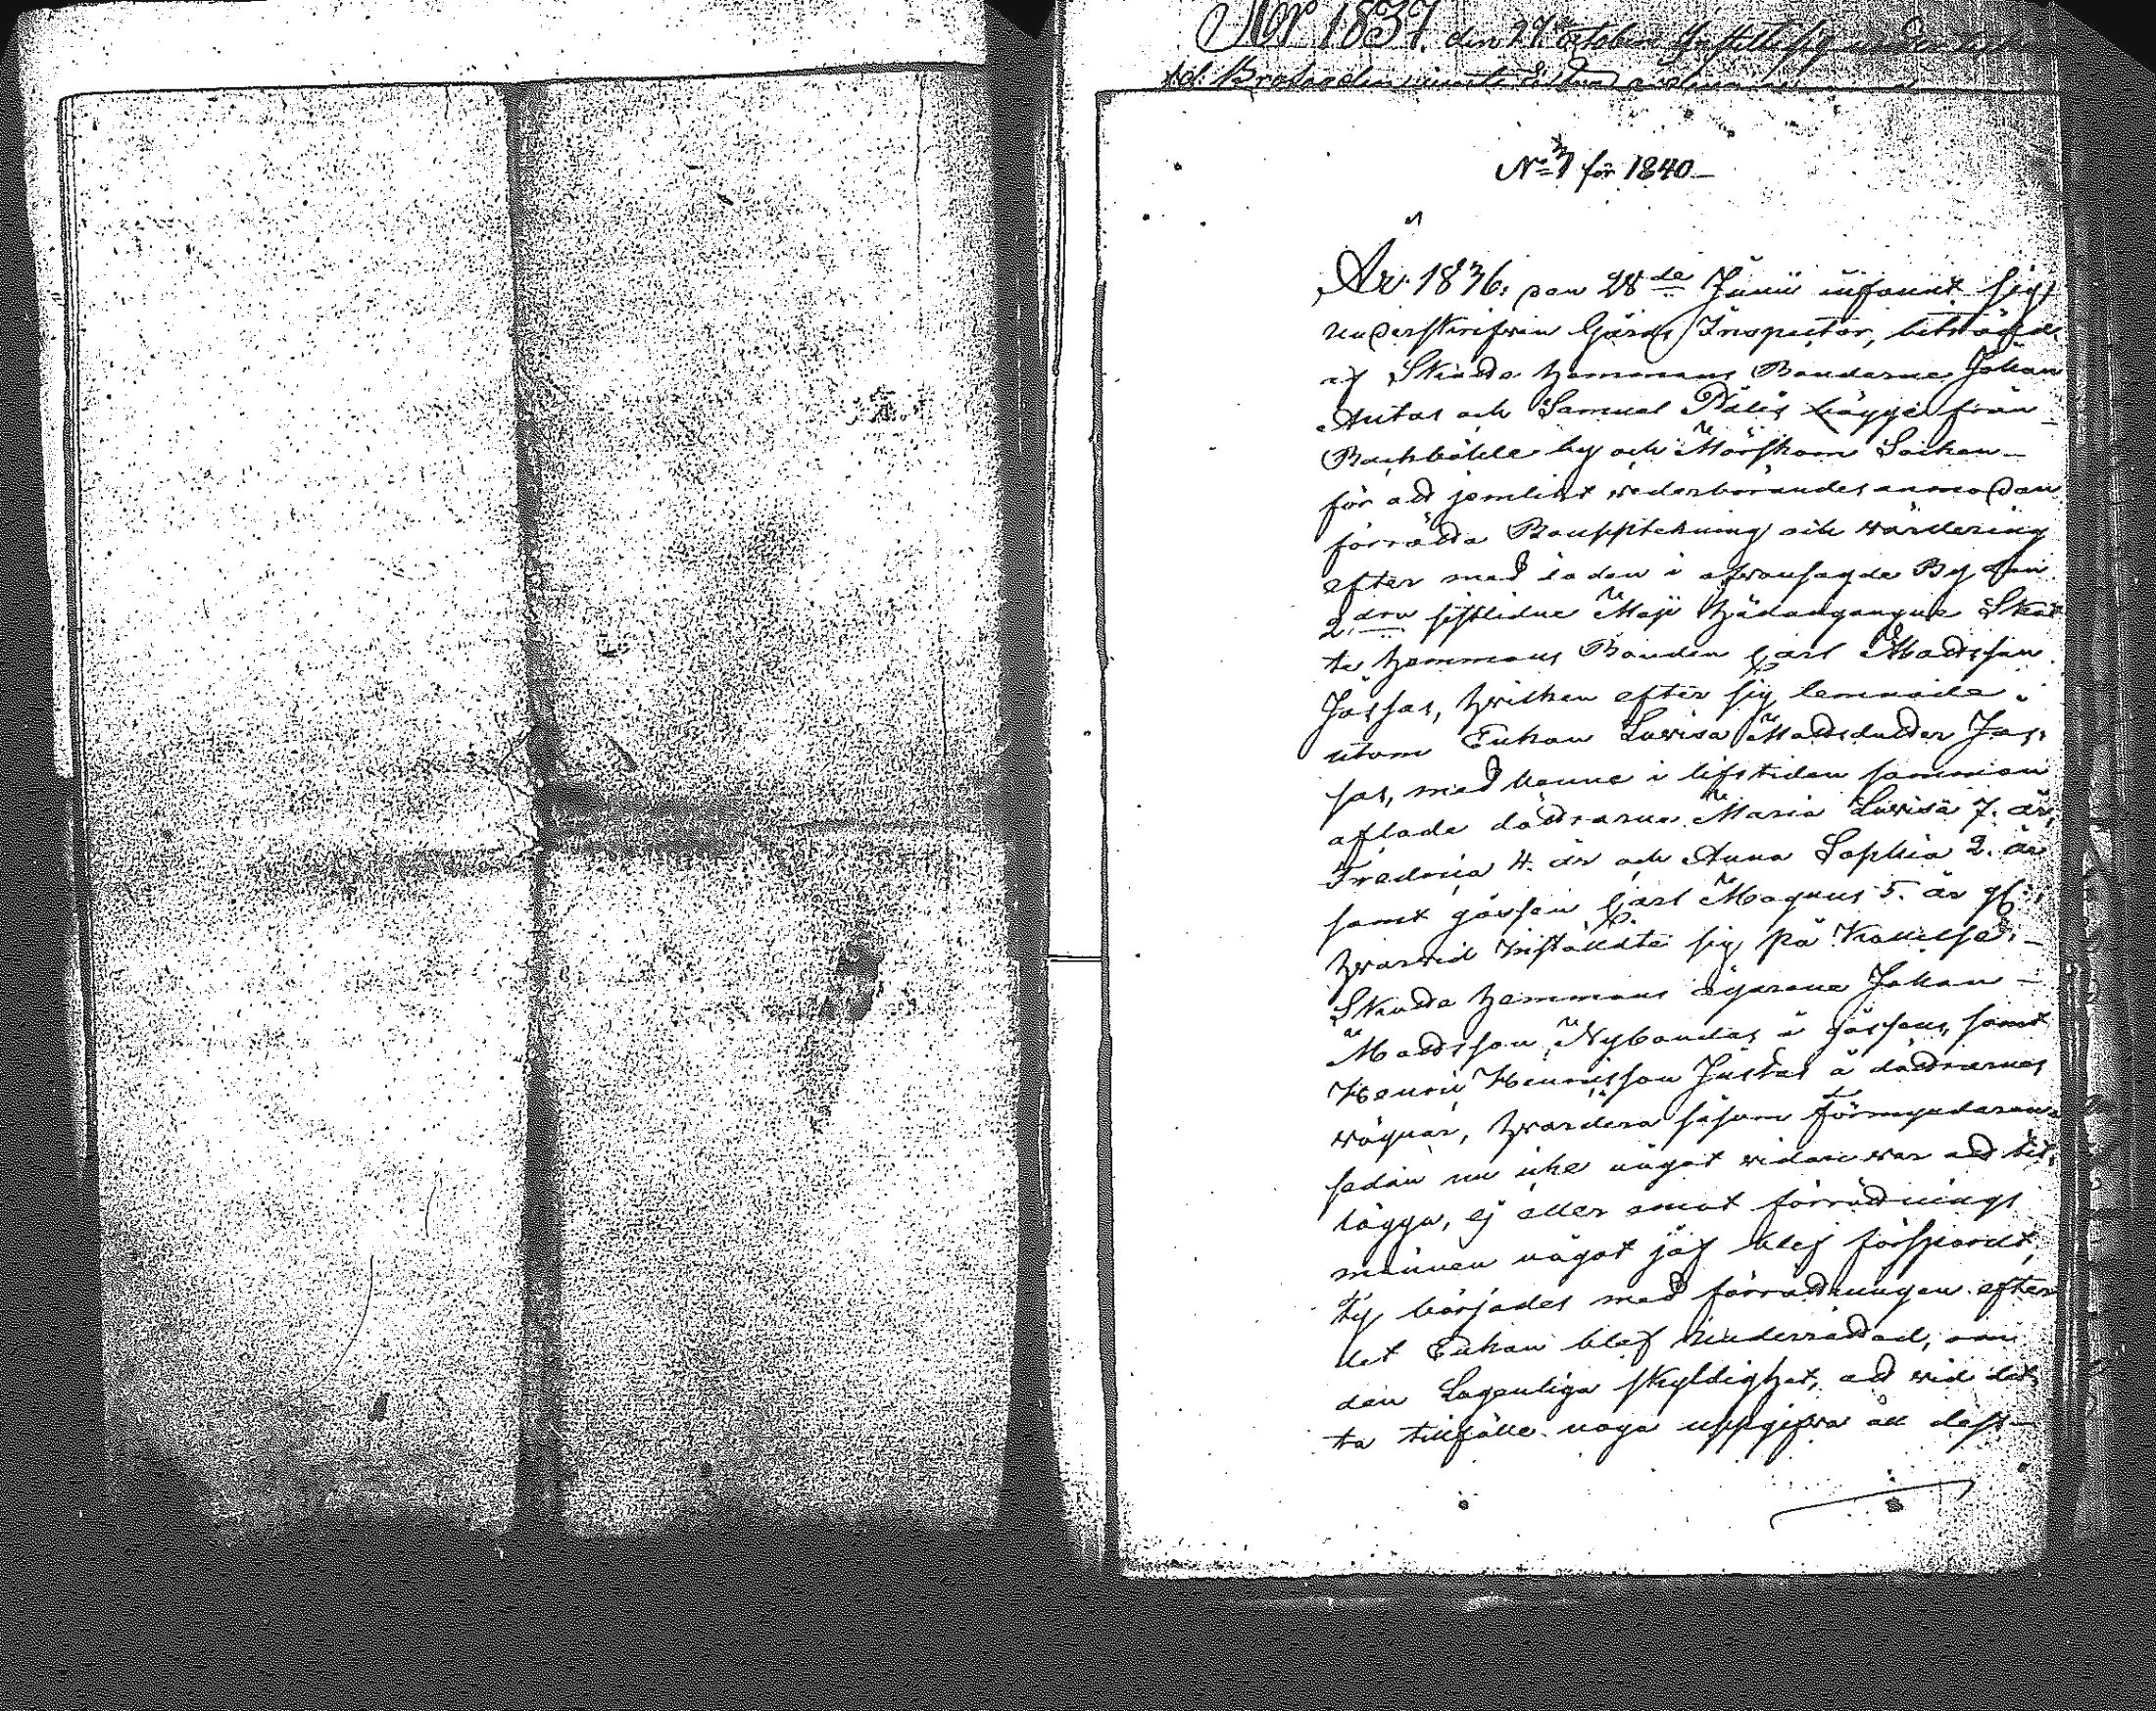 År 1837. den 27 October
N:o 7 för 1840
År 1836. den 28de Junii infann sig
underskrifven Gårds Inspector, biträdd
af Skatte Hemmans Bönderne Johan
Antas och Samuel Pålis bägge från
Backböhle by och Mörskom Sochen
för att jemlikt vederbörandes anmodan
förrätta Boupptekning och värdering
efter med döden i ofvansagde By den
2dra sistlidne Maji hädangangne Skat
te Hemmans Bonden Carl Mattsson
Jossas, hvilken efter sig lemnade
utom Enkan Lovisa Mattsdotter Jos-
sas, med henne i lifstiden samman
aflade döttrarne Maria Lovisa 7. år,
Fredrica 4. år och Anna Sophia 2. år
samt gossen Carl Magnus 5. år gl:
hvarvid inställdte sig på kallelse
Skatte Hemmans ägarene Johan
Mattsson Nybondas å gossens, samt
Henric Henricsson Justas å döttrarnes
vägnar, hvardera såsom förmyndarene
sedan nu icke något vidare var att bi-
lägga, ej eller emot förrättnings
männen något jäf blef försport,
ty börjades med förrättningen efter
det Enkan blef underrättad, om
den Lagenliga skyldighet, att vid det
ta tillfälle noga uppgifva all dess